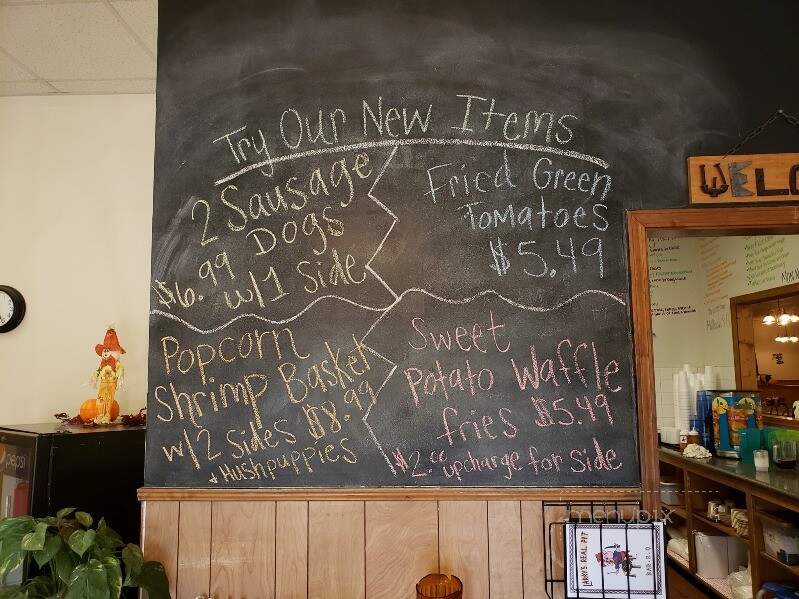 Try Our New Items
2 Sausage
Dogs
$6.99 w/1 Side
Fried Green
Tomatoes
$5.49
Popcorn
Shrimp Basket
w/2 Sides $8.99
+ Hushpuppies
Sweet
Potato Waffle
fries $5.49
$2.00 upcharge for side
WELC
pepsi
menupix
LARRY'S REAL PIT
BAR-B-Q